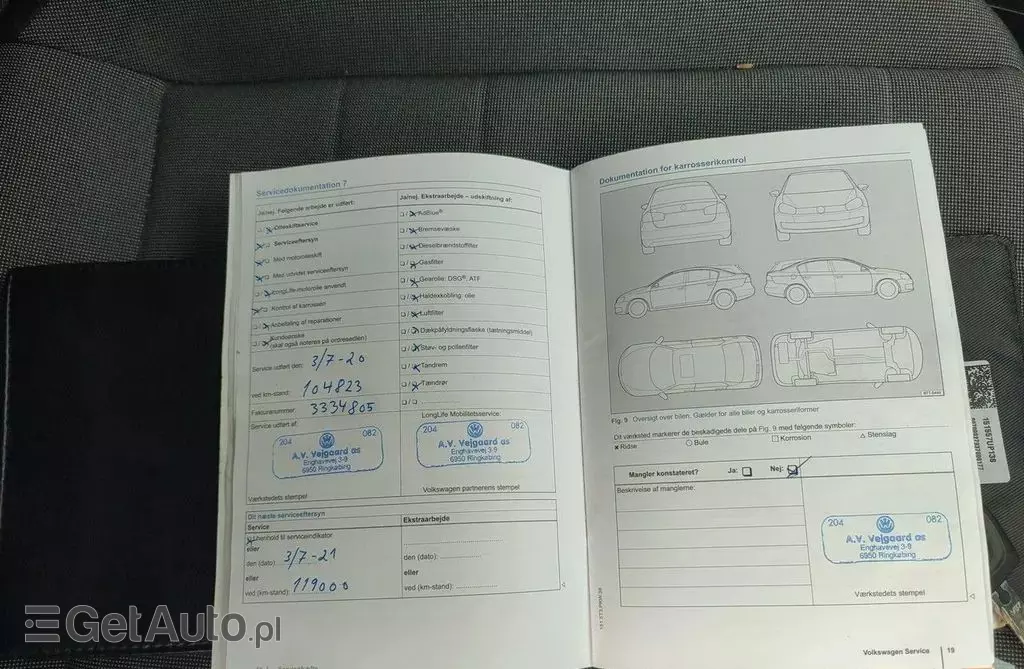 Servicedokumentation 7
Ja/nej. Følgende arbejde er udført:
Olieskiftservice
Serviceeftersyn
Med motorolieskift
Med udvidet serviceeftersyn
LongLife-motorolie anvendt
Kontrol af karrossen
Anbefaling af reparationer
Kundeønske
(skal også noteres på ordresedlen)
Service udført den: 3/7-20
ved km-stand: 104823
Fakturanummer: 3334805
Service udført af:
204 082
A.V. Vejgaard as
Enghavevej 3-9
6950 Ringkøbing
Værkstedets stempel
Ja/nej. Ekstraarbejde – udskiftning af:
AdBlue®
Bremsevæske
Dieselbrændstoffilter
Gasfilter
Gearolie: DSG®, ATF
Haldexkobling: olie
Luftfilter
Dækpåfyldningsflaske (tætningsmiddel)
Støv- og pollenfilter
Tandrem
Tændrør
LongLife Mobilitetsservice:
204 082
A.V. Vejgaard as
Enghavevej 3-9
6950 Ringkøbing
Volkswagen partnerens stempel
Dit næste serviceeftersyn
Service
I henhold til serviceindikator
eller
den (dato): 3/7-21
eller
ved (km-stand): 119000
Ekstraarbejde
den (dato):
eller
ved (km-stand):
Dokumentation for karrosserikontrol
Fig. 9 Oversigt over bilen. Gælder for alle biler og karrosseriformer
Dit værksted markerer de beskadigede dele på Fig. 9 med følgende symboler:
Ridse Bule Korrosion Stenslag
Mangler konstateret? Ja: Nej:
Beskrivelse af manglerne:
204 082
A.V. Vejgaard as
Enghavevej 3-9
6950 Ringkøbing
Værkstedets stempel
Volkswagen Service 19
GetAuto.pl